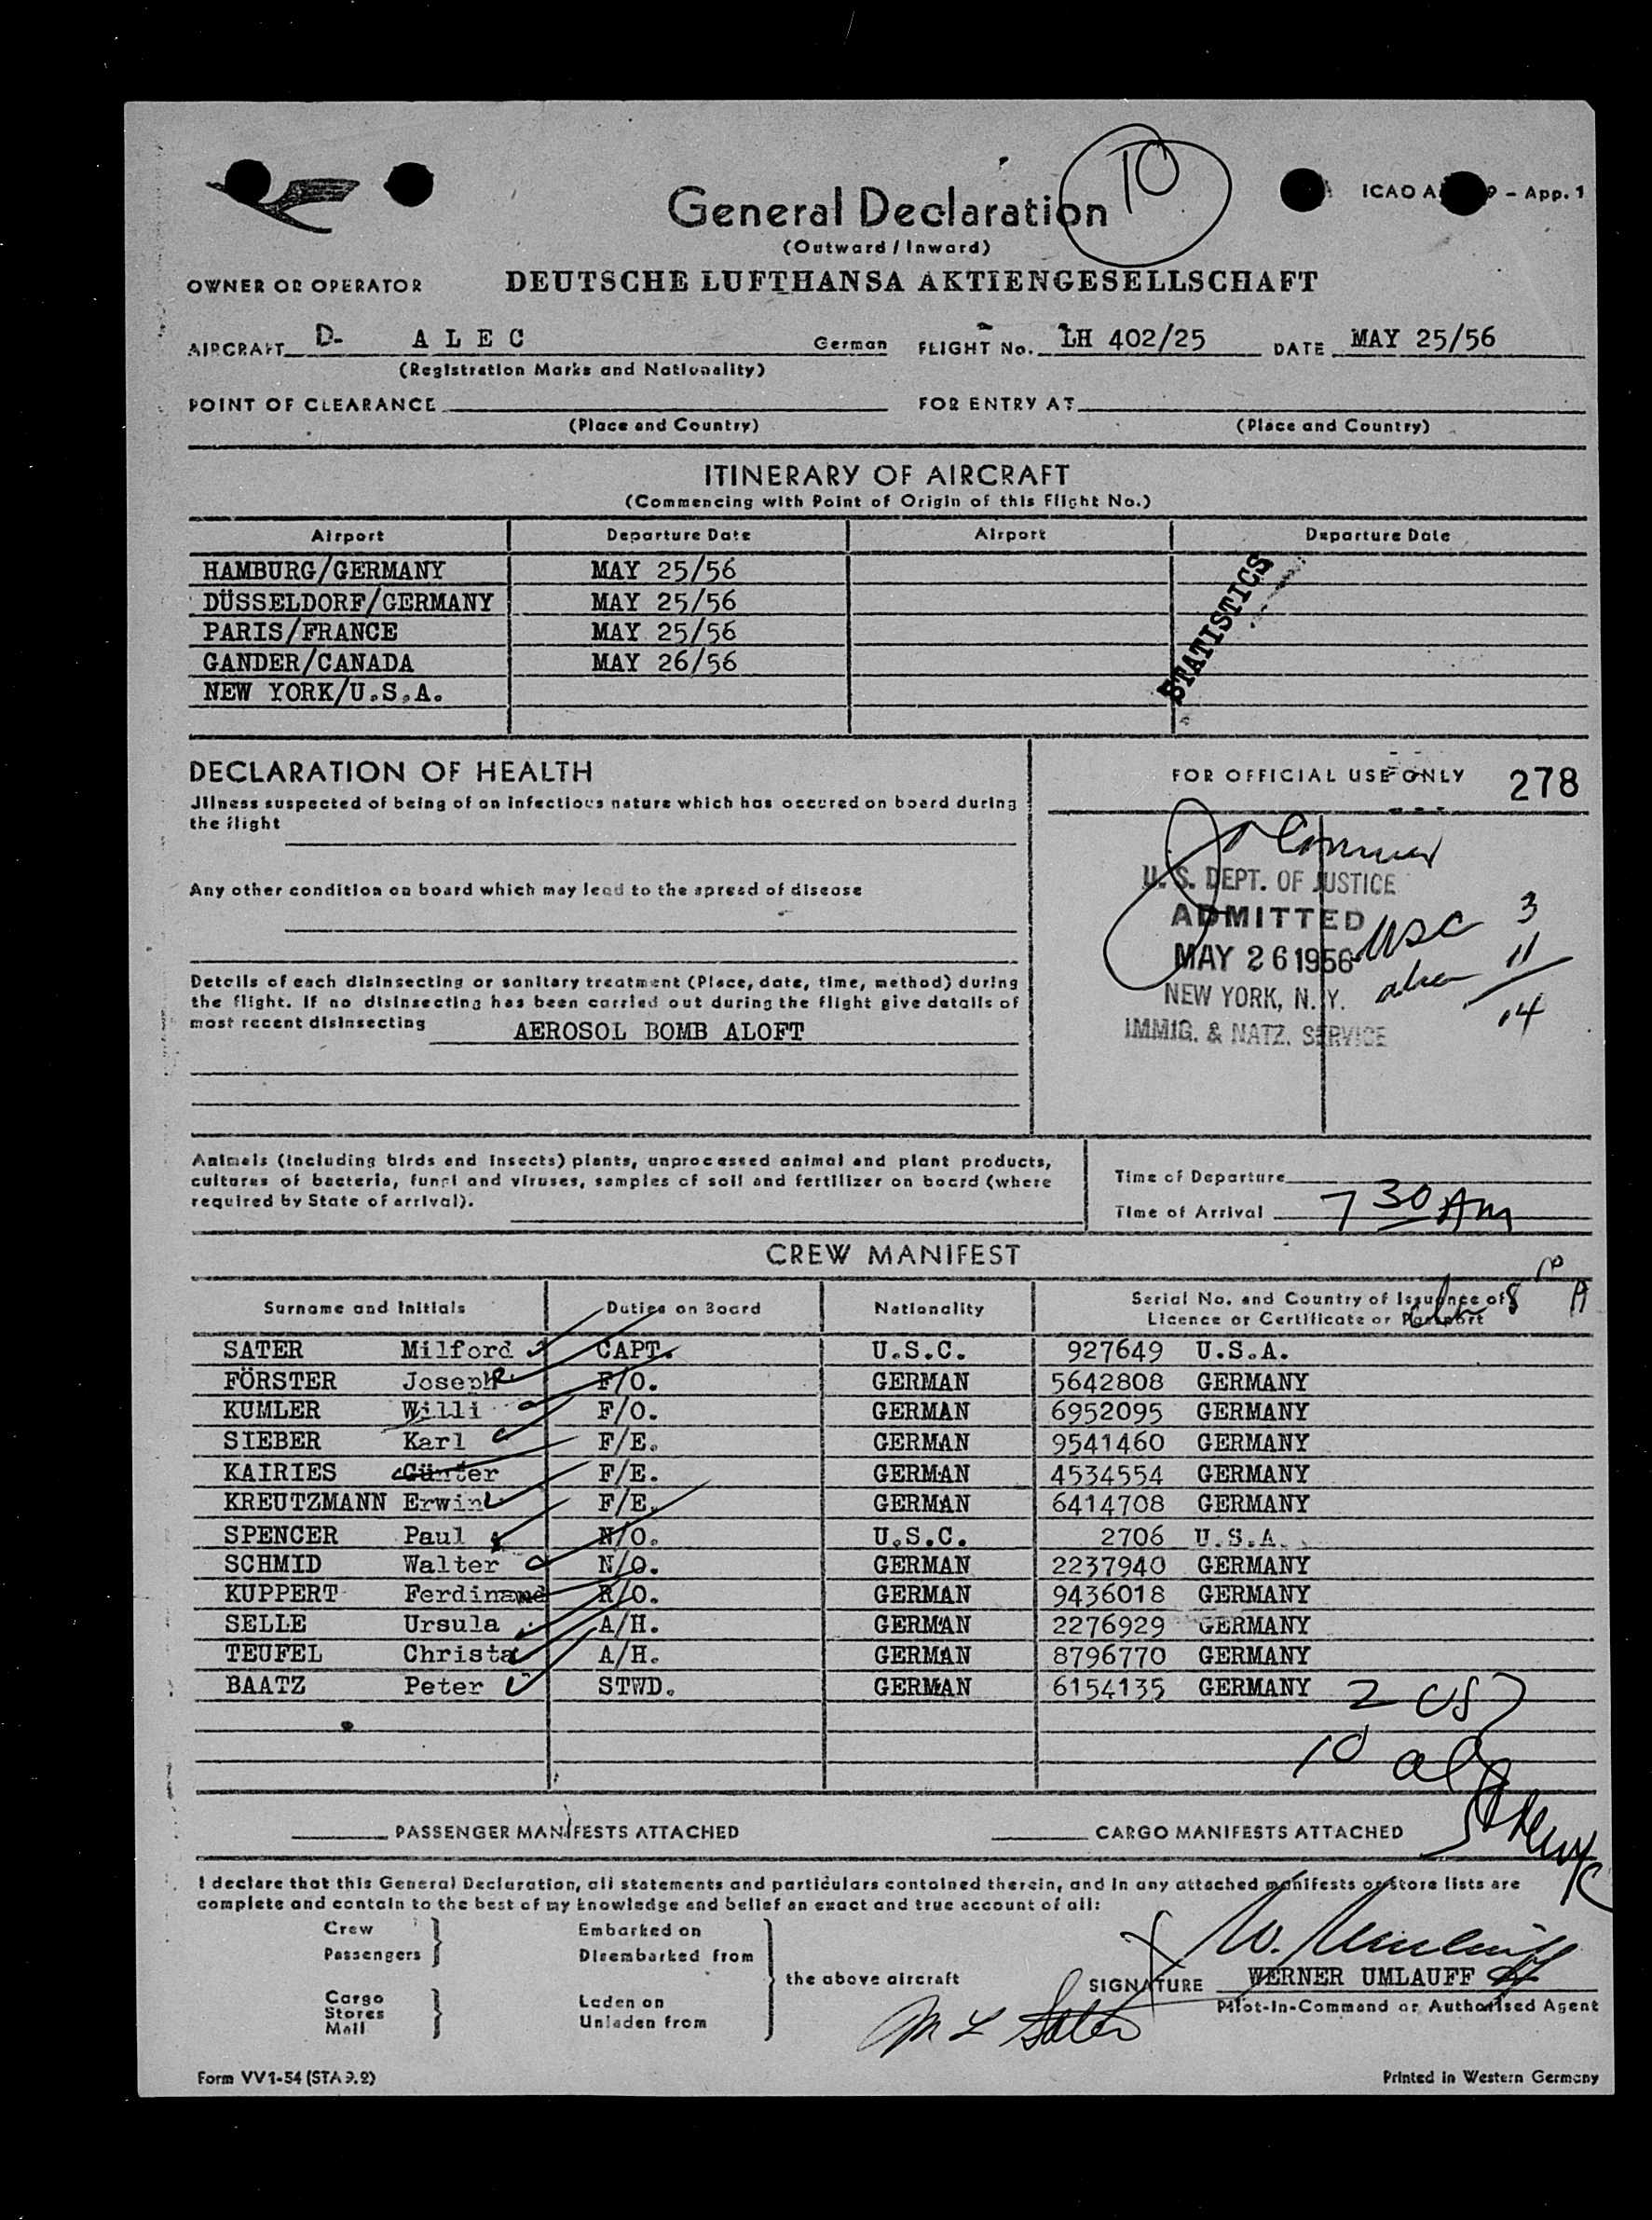 10
ICAO A 9 – App. 1
General Declaration
(Outward / Inward)
OWNER OR OPERATOR DEUTSCHE LUFTHANSA AKTIENGESELLSCHAFT
AIRCRAFT D- A L E C German FLIGHT No. LH 402/25 DATE MAY 25/56
(Registration Marks and Nationality)
POINT OF CLEARANCE FOR ENTRY AT
(Place and Country) (Place and Country)
ITINERARY OF AIRCRAFT
(Commencing with Point of Origin of this Flight No.)
Airport Departure Date Airport Departure Date
HAMBURG/GERMANY MAY 25/56
DÜSSELDORF/GERMANY MAY 25/56
PARIS/FRANCE MAY 25/56
GANDER/CANADA MAY 26/56
NEW YORK/U.S.A.
STATISTICS
DECLARATION OF HEALTH
Jllness suspected of being of an infectious nature which has occured on board during
the flight
Any other condition on board which may lead to the spread of disease
Details of each disinsecting or sanitary treatment (Place, date, time, method) during
the flight. If no disinsecting has been carried out during the flight give details of
most recent disinsecting AEROSOL BOMB ALOFT
FOR OFFICIAL USE ONLY 278
U. S. DEPT. OF JUSTICE
ADMITTED USC 3
MAY 26 1956
NEW YORK, N. Y. alien 11
14
IMMIG. & NATZ. SERVICE
Animals (including birds and insects) plants, unprocessed animal and plant products,
cultures of bacteria, fungi and viruses, samples of soil and fertilizer on board (where
required by State of arrival).
Time of Departure
Time of Arrival 7 30 AM
CREW MANIFEST
Surname and Initials Duties on Board Nationality Serial No. and Country of Issuance of
Licence or Certificate or Passport
SATER Milford CAPT. U.S.C. 927649 U.S.A.
FÖRSTER Joseph F/O. GERMAN 5642808 GERMANY
KUMLER Willi F/O. GERMAN 6952095 GERMANY
SIEBER Karl F/E. GERMAN 9541460 GERMANY
KAIRIES Günter F/E. GERMAN 4534554 GERMANY
KREUTZMANN Erwin F/E. GERMAN 6414708 GERMANY
SPENCER Paul N/O. U.S.C. 2706 U.S.A.
SCHMID Walter N/O. GERMAN 2237940 GERMANY
KUPPERT Ferdinand R/O. GERMAN 9436018 GERMANY
SELLE Ursula A/H. GERMAN 2276929 GERMANY
TEUFEL Christa A/H. GERMAN 8796770 GERMANY
BAATZ Peter STWD. GERMAN 6154135 GERMANY
2 US
10 al
PASSENGER MANIFESTS ATTACHED CARGO MANIFESTS ATTACHED
I declare that this General Declaration, all statements and particulars contained therein, and in any attached manifests or store lists are
complete and contain to the best of my knowledge and belief an exact and true account of all:
Crew Embarked on
Passengers Disembarked from
the above aircraft
Cargo Laden on
Stores
Mail Unladen from
SIGNATURE W. Umlauff
WERNER UMLAUFF
Pilot-In-Command or Authorised Agent
M L Sater
Form VV1-54 (STA 9.2) Printed in Western Germany